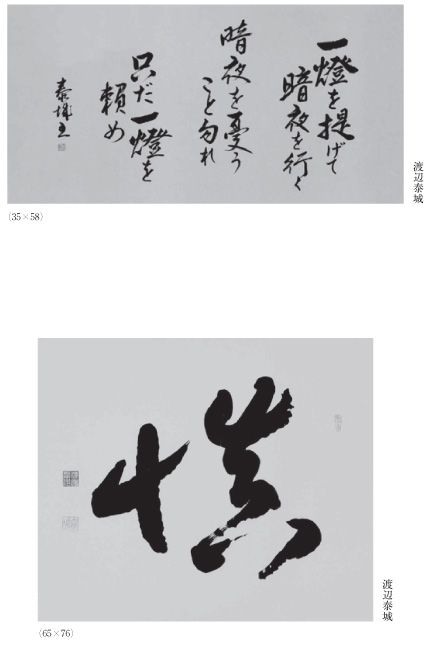 一燈を提げて
暗夜を行く
暗夜を憂う
こと勿れ
只だ一燈を
頼め
泰城書
渡辺泰城
(35×58)
慎
渡辺泰城
(65×76)